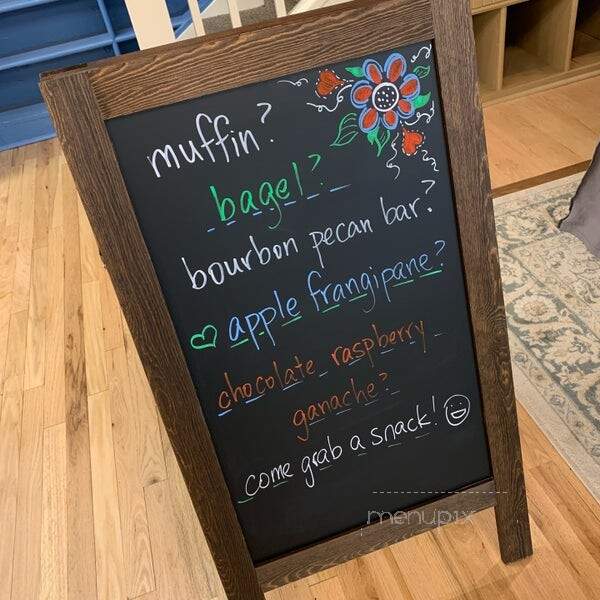 muffin?
bagel?
bourbon pecan bar?
apple frangipane?
chocolate raspberry
ganache?
come grab a snack!
menupix